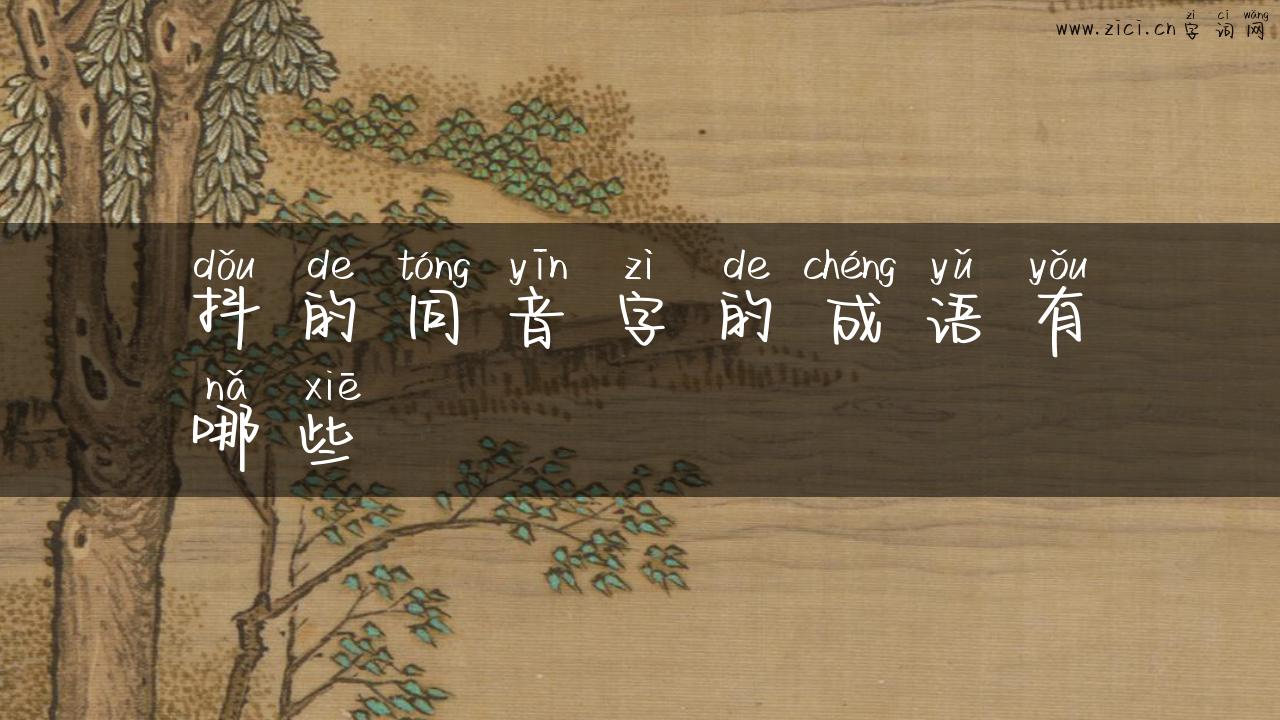 zì cí wǎng
www.zici.cn 字词网
dǒu de tóng yīn zì de chéng yǔ yǒu
抖的同音字的成语有
nǎ xiē
哪些